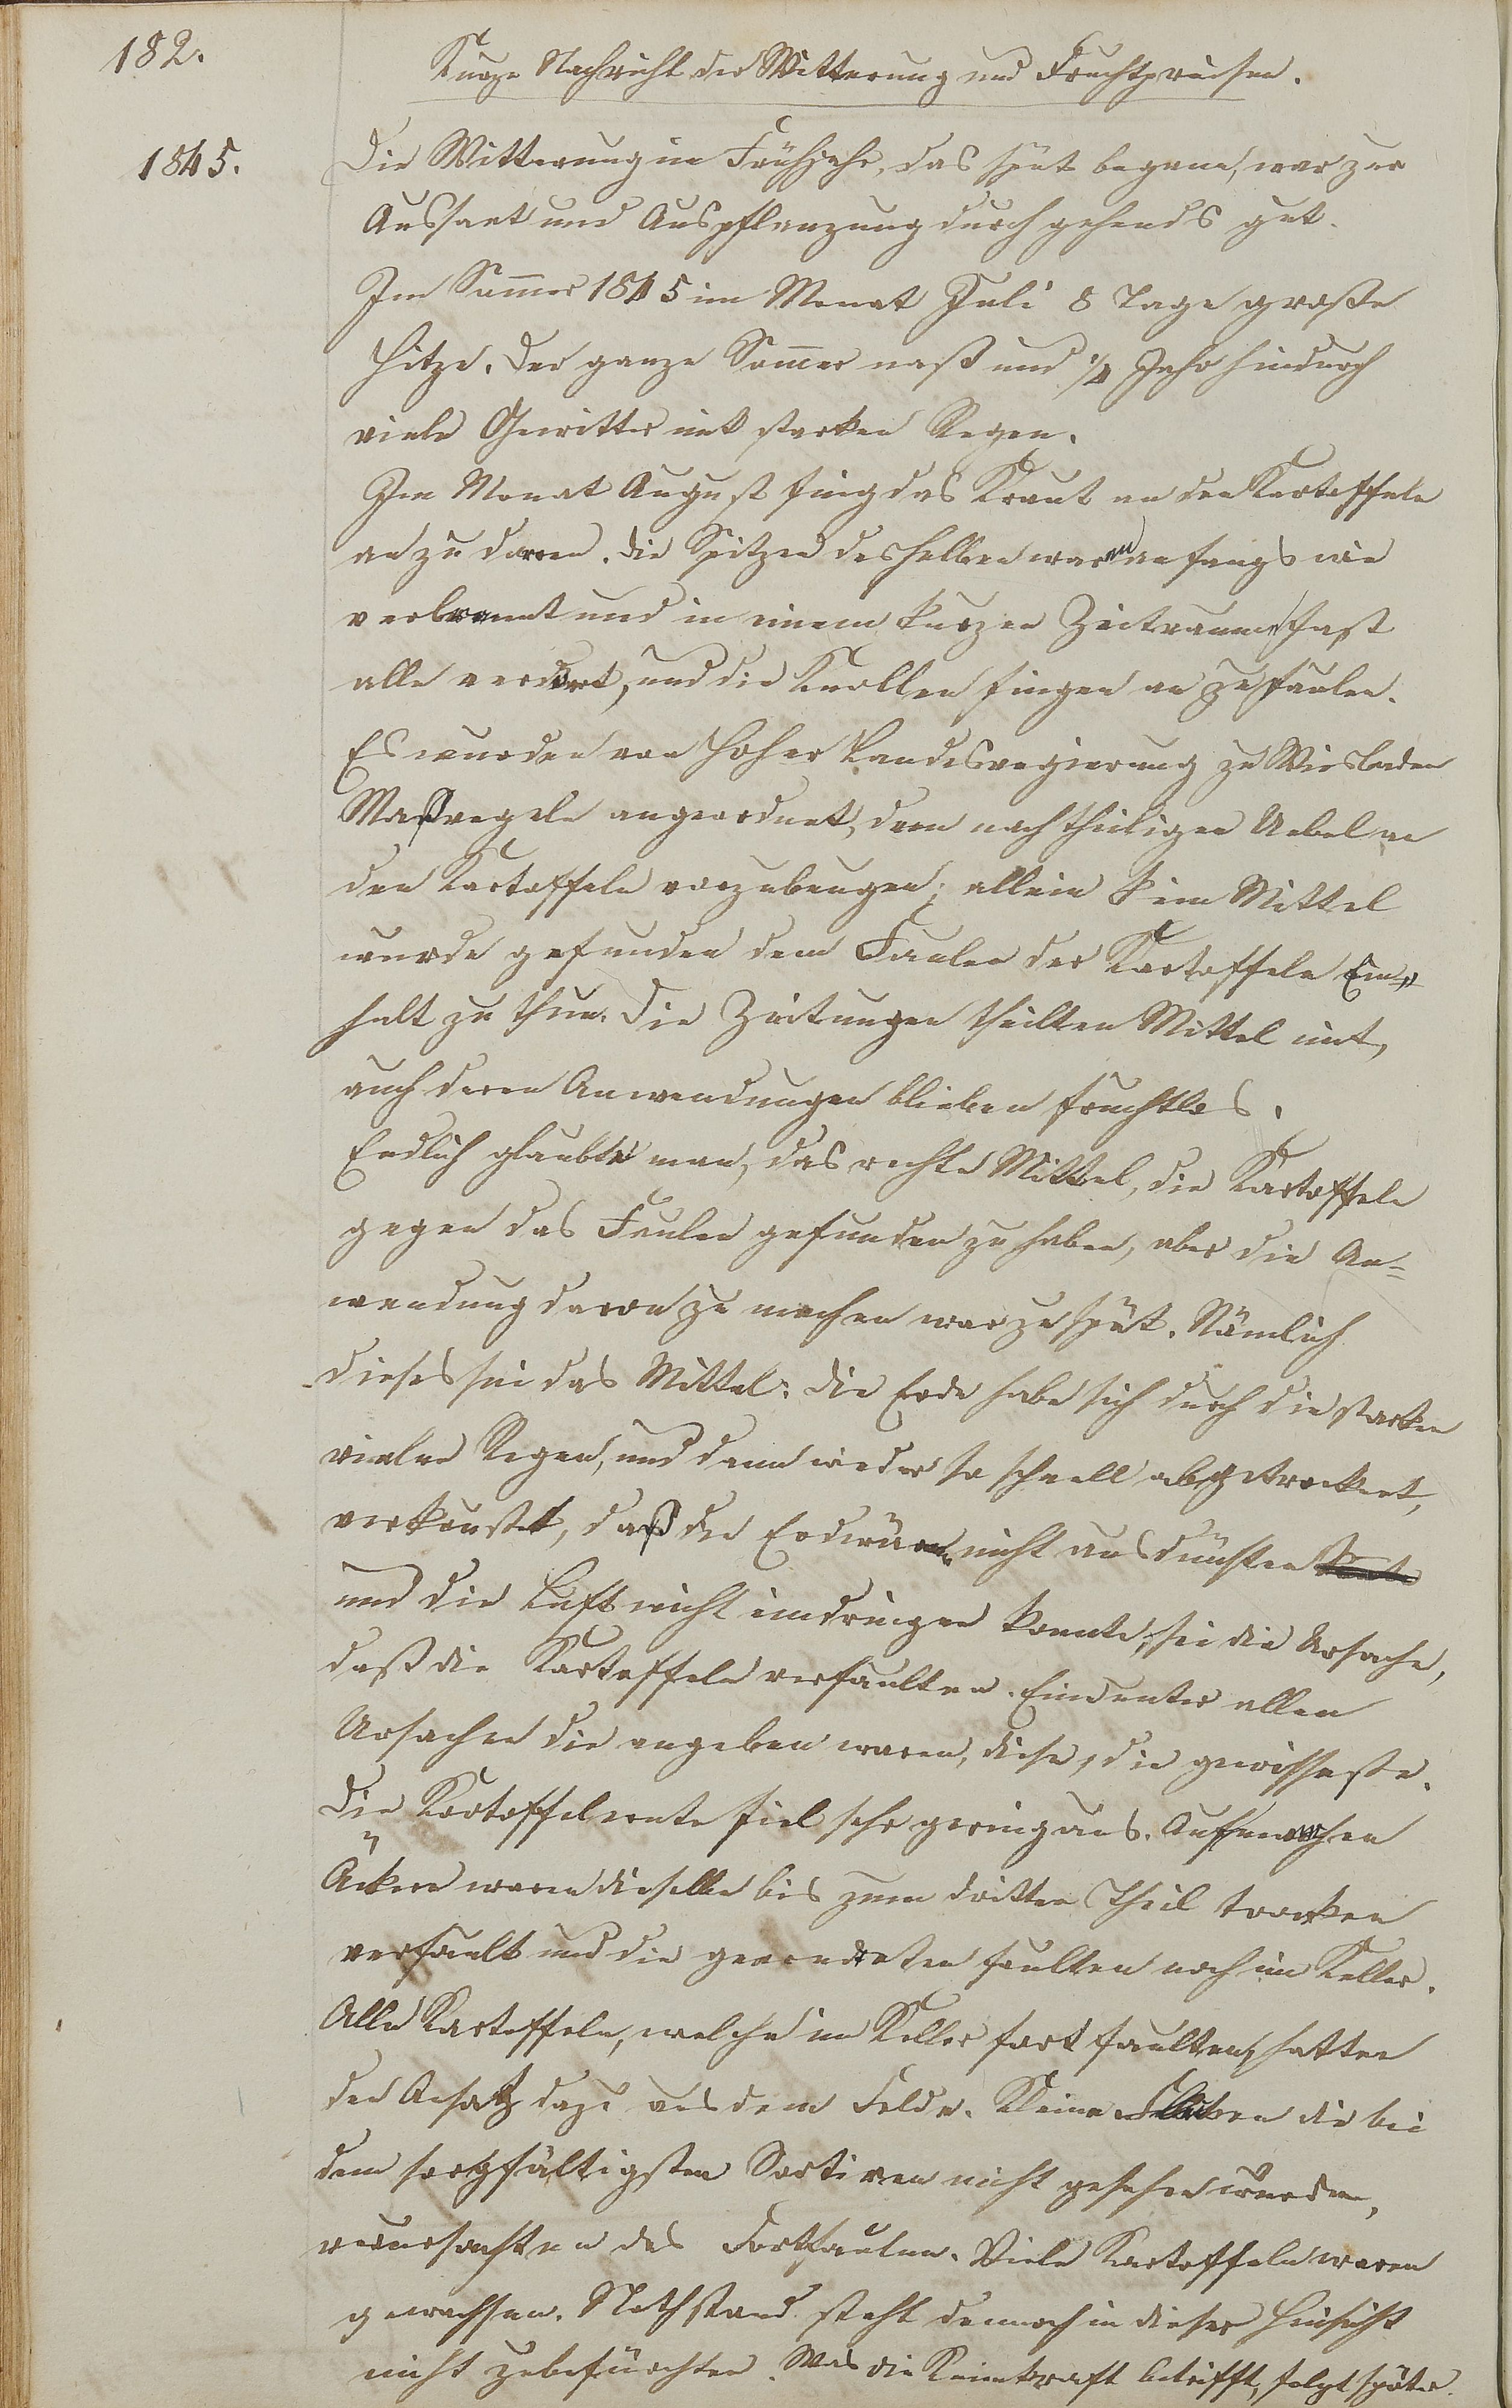 182.
Kurze Nachricht der Witterung und Fruchtpreisen.
1845.
Die Witterung im Frühjahr, das spät begann, war zur
Aussaat und Auspflanzung durchgehends gut.
Im Sommer 1845 im Monat Juli 8 Tage große
Hitze. Der ganze Sommer naß und 1/4 Jahr hindurch
viele Gewitter mit starken Regen.
Im Monat August fing das Kraut an den Kartoffeln
an zu dorren. Die Spitzen desselben waren anfangs wie
verbrannt und in einem kurzen Zeitraume fast
alle verdorrt, und die Knollen fingen an zu faulen.
Es wurden von hoher Landesregierung zu Wiesbaden
Maßregeln angeordnet, dem nachtheiligen Uebel an
den Kartoffeln vorzubeugen; allein kein Mittel
wurde gefunden dem Faulen der Kartoffeln Ein=
halt zu thun. Die Zeitungen theilten Mittel mit,
auch deren Anwendungen blieben fruchtlos.
Endlich glaubte man, das rechte Mittel, die Kartoffeln
gegen das Faulen gefunden zu haben, aber die An=
wendung davon zu machen war zu spät. Nämlich
dieses sei das Mittel: Die Erde habe sich durch die starken
vielen Regen, und dann wieder so schnell abgetrocknet,
verkrustet, daß die Erdwärme nicht ausdünsten
und die Luft nicht eindringen konnte, sei die Ursache,
daß die Kartoffeln verfaulten. Eine unter allen
Ursachen die angeben waren, diese, die gewisseste.
Die Kartoffelernte fiel sehr gering aus. Auf manchen
Äckern waren dieselben bis zum dritten Theil trocken
verfault und die geerndteten faulten noch im Keller.
Alle Kartoffeln, welche im Keller fort faulten, hatten
den Ansatz dazu aus dem Felde. Kleine die bei
dem sorgfältigsten Sortiren nicht gesehen wurden,
verursachten das Fortfaulen. Viele Kartoffeln waren
gewachsen. Nothstand steht dennoch in dieser Hinsicht
nicht zu befürchten. Was die Keimkraft betrifft, folgt später.